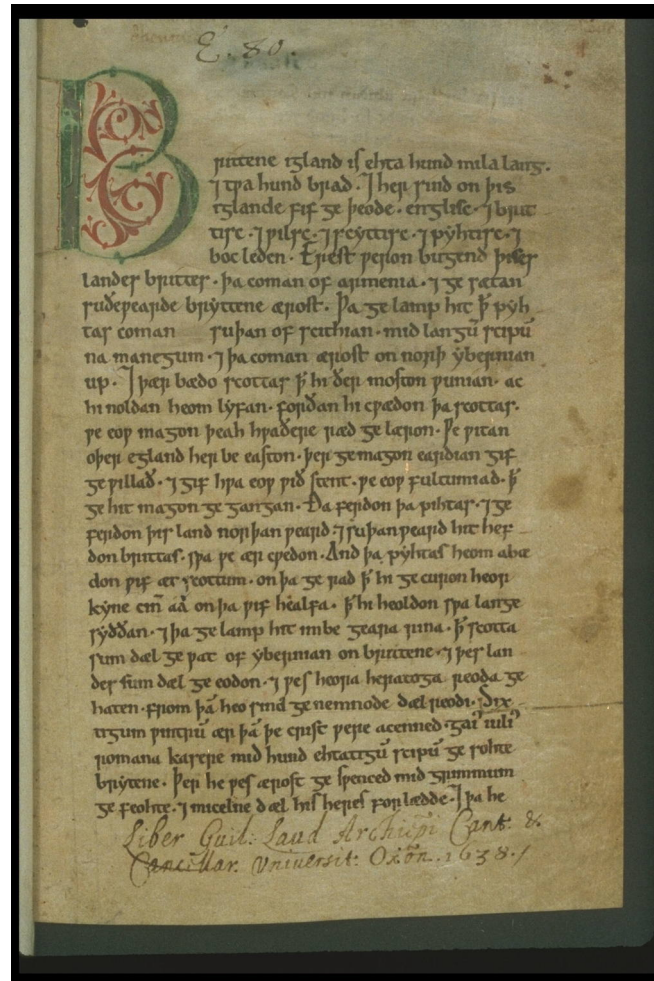 E. 80.
Brittene igland is ehta hund mila lang.
⁊ tƿa hund brad. ⁊ her sind on þis
iglande fif ge þeode. englisc. ⁊ brit
tisc. ⁊ ƿilsc. ⁊ scyttisc. ⁊ pyhtisc. ⁊
boc leden. Erest ƿeron bugend þises
landes brittes. þa coman of armenia. ⁊ ge sætan
suðeƿearde bryttene ærost. Þa ge lamp hit þ̄ pyh
tas coman suþan of scithian. mid langū scipū
na manegum. ⁊ þa coman ærost on norþ ybernian
up. ⁊ þær bædo scottas þ̄ hi ðer moston ƿunian. ac
hi noldan heom lyfan. forðan hi cƿædon þa scottas.
ƿe eoƿ magon þeah hƿaðere ræd ge læron. Ƿe ƿitan
oþer egland her be easton. þer ge magon eardian gif
ge ƿillað. ⁊ gif hƿa eoƿ ƿið stent. ƿe eoƿ fultumiað. þ̄
ge hit magon ge gangan. Ða ferdon þa pihtas. ⁊ ge
ferdon þis land norþan ƿeard. ⁊ suþan ƿeard hit hef
don brittas. sƿa ƿe ær cƿedon. And þa pyhtas heom abæ
don ƿif æt scottum. on þa ge rad þ̄ hi ge curon heor
kyne cin̄ aa on þa ƿif healfa. þ̄ hi heoldon sƿa lange
syððan. ⁊ þa ge lamp hit imbe geara rina. þ̄ scotta
sum dæl ge ƿat of ybernian on brittene. ⁊ þes lan
des sum dæl ge eodon. ⁊ ƿes heora heratoga reoda ge
haten. from þā heo sind ge nemnode dæl reodi. Six
tigum ƿintrū ær þā þe crist ƿere acenned. gaī iulī
romana kasere mid hund ehtatigū scipū ge sohte
brytene. Þer he ƿes ærost ge sƿenced mid grimmum
ge feohte. ⁊ micelne dæl his heres forlædde. ⁊ þa he
Liber Guil: Laud Archiēpi Cant. &
Cancillar. Vniuersit. Oxōn. 1638.